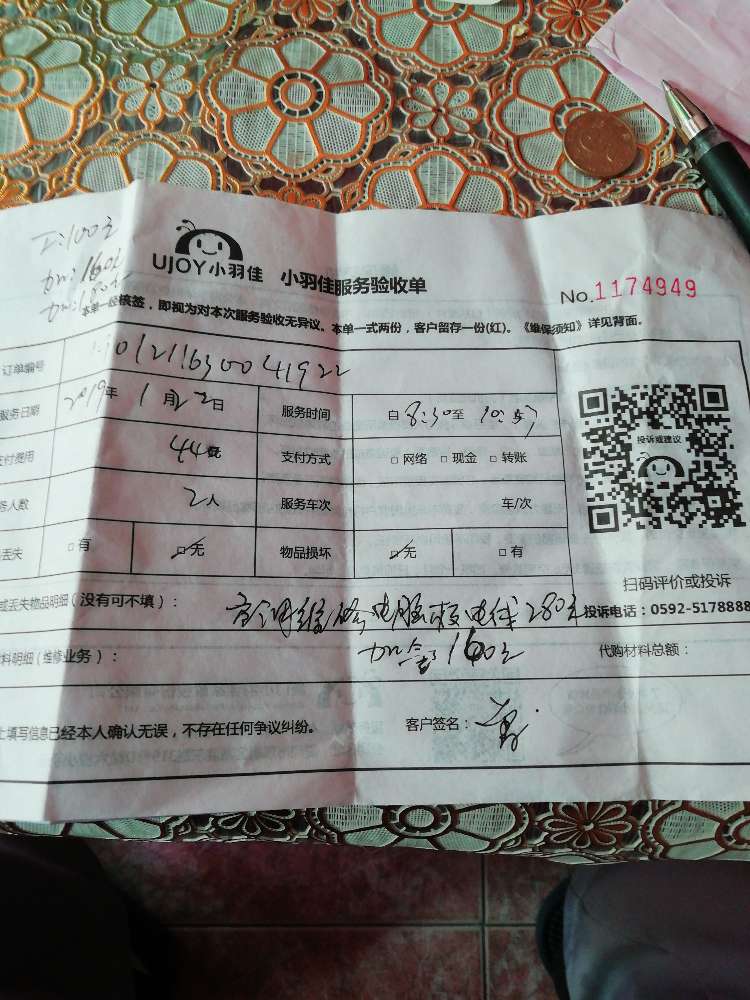 工:100元
加:160元
UJOY小羽佳 小羽佳服务验收单
No.1174949
本单一经核签，即视为对本次服务验收无异议。本单一式两份，客户留存一份(红)。《维保须知》详见背面。
订单编号
服务日期 2019年 1月22日 服务时间 自8:30至10:57
支付费用 44 支付方式 □网络 □现金 □转账
务人数 2人 服务车次 车/次
丢失 □有 □无 物品损坏 □无 □有
投诉或建议
扫码评价或投诉
投诉电话：0592-5178888
或丢失物品明细（没有可不填）： 空调维修电脑板电线280元
料明细（维修业务）： 160元 代购材料总额：
上填写信息已经本人确认无误，不存在任何争议纠纷。 客户签名：